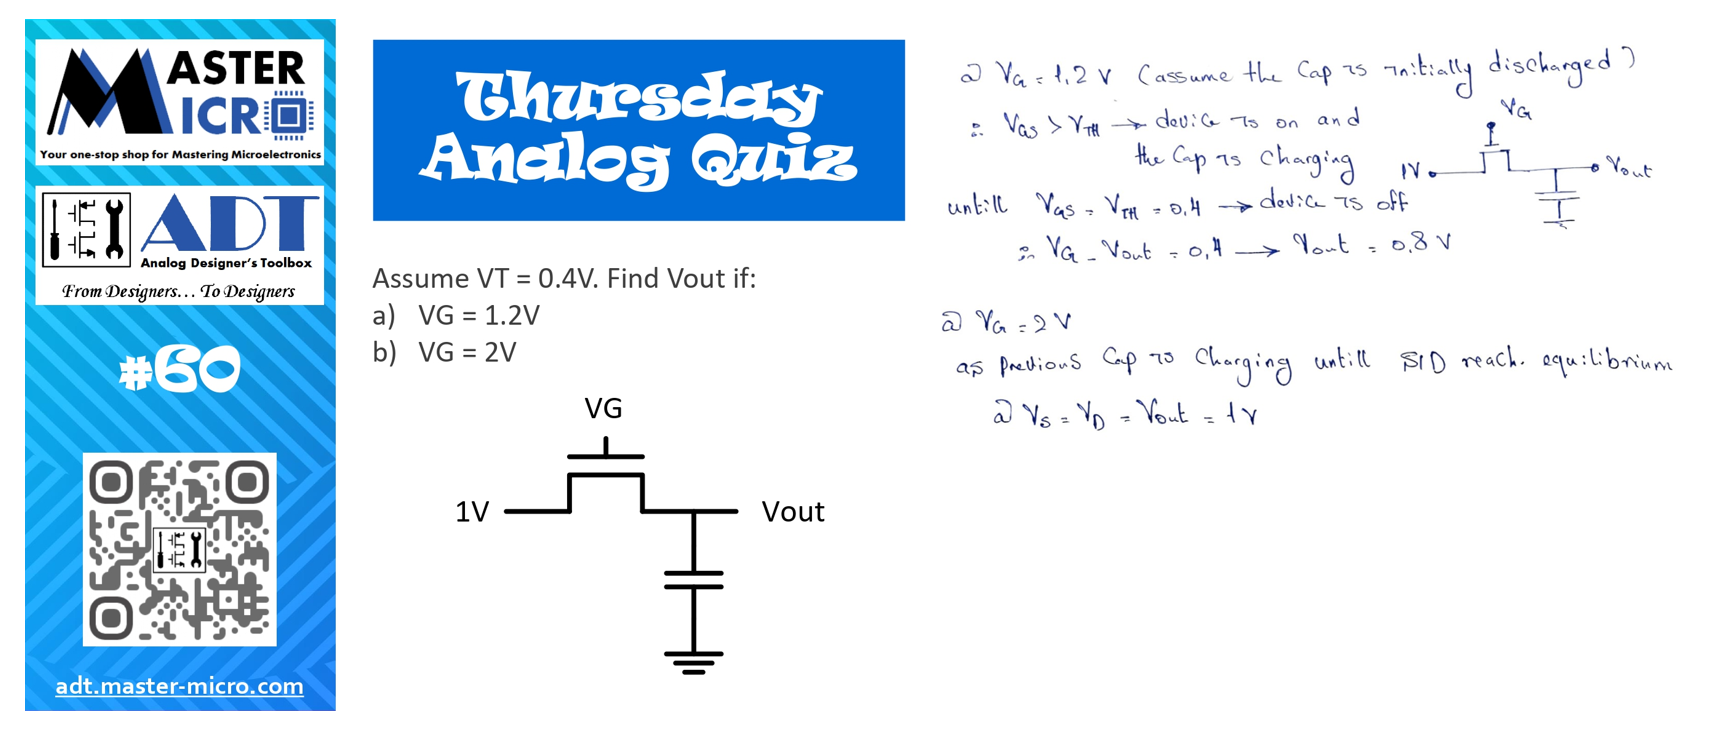 MASTER
MICRO
Your one-stop shop for Mastering Microelectronics
ADT
Analog Designer's Toolbox
From Designers... To Designers
#60
adt.master-micro.com
Thursday
Analog Quiz
Assume VT = 0.4V. Find Vout if:
a) VG = 1.2V
b) VG = 2V
VG
1V
Vout
a) VG = 1.2 V (assume the Cap is initially discharged)
∴ VGS > VTH → device is on and
the Cap is Charging
untill VGS = VTH = 0.4 → device is off
∴ VG - Vout = 0.4 → Vout = 0.8 V
VG
1V
Vout
a) VG = 2 V
as previous Cap is Charging untill S/D reach. equilibrium
a) VS = VD = Vout = 1 V